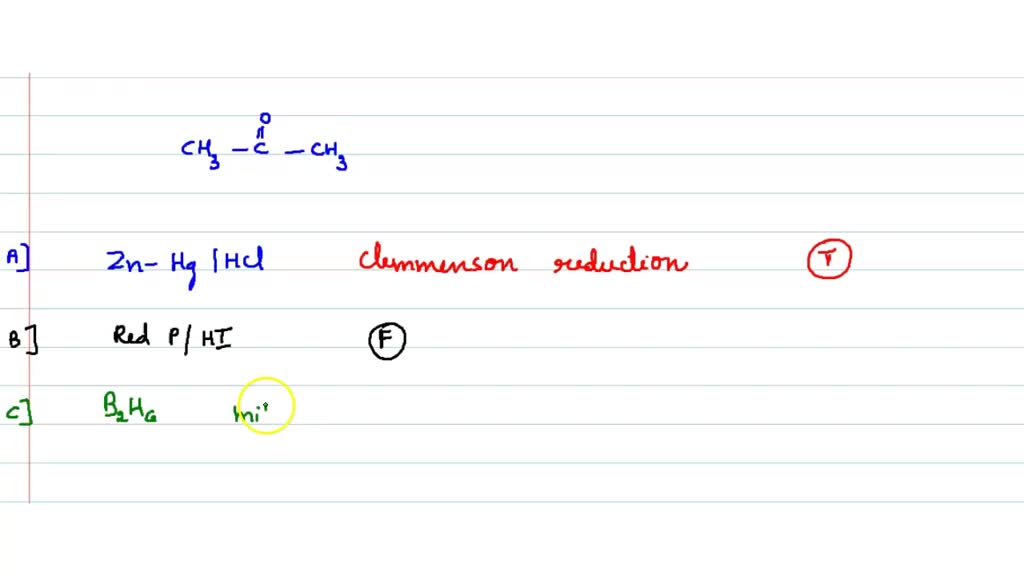 O
CH3 – C – CH3
A] Zn- Hg | HCl Clemmenson reduction T
B] Red P/HI F
C] B2H6 ini